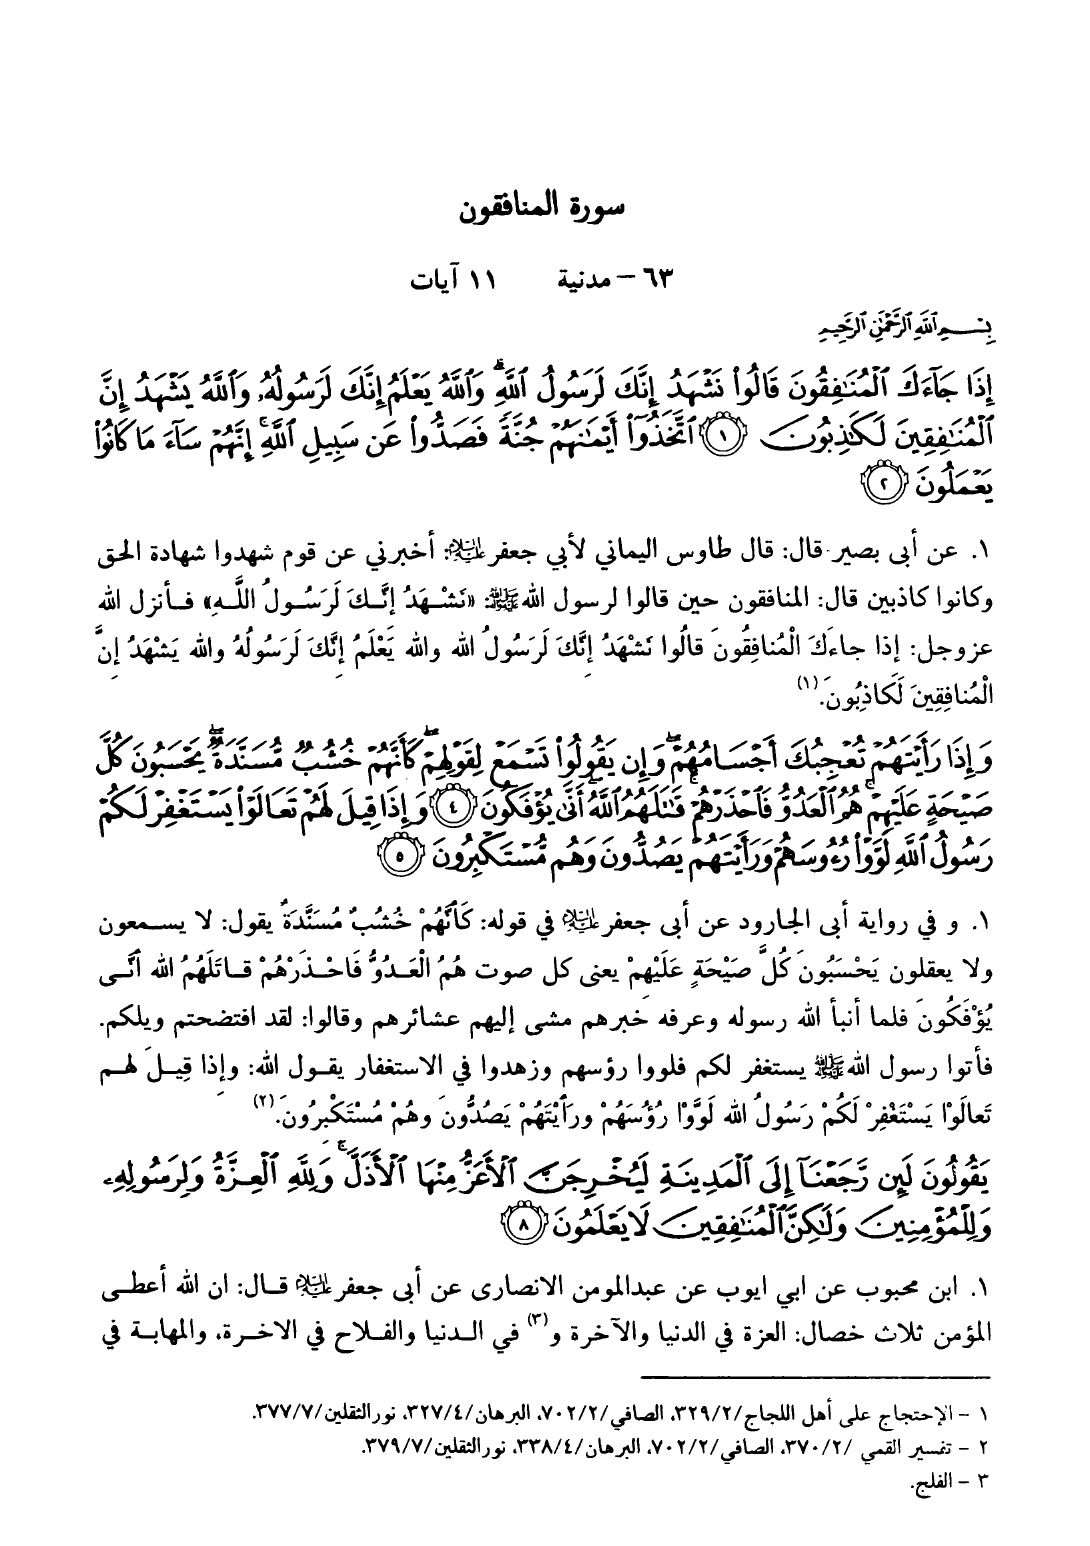 سورة المنافقون
٦٣ – مدنية ١١ آيات
بِسْمِ اللَّهِ الرَّحْمَٰنِ الرَّحِيمِ
إِذَا جَآءَكَ ٱلْمُنَٰفِقُونَ قَالُوا۟ نَشْهَدُ إِنَّكَ لَرَسُولُ ٱللَّهِ ۗ وَٱللَّهُ يَعْلَمُ إِنَّكَ لَرَسُولُهُۥ وَٱللَّهُ يَشْهَدُ إِنَّ
ٱلْمُنَٰفِقِينَ لَكَٰذِبُونَ ﴿١﴾ ٱتَّخَذُوٓا۟ أَيْمَٰنَهُمْ جُنَّةً فَصَدُّوا۟ عَن سَبِيلِ ٱللَّهِ ۚ إِنَّهُمْ سَآءَ مَا كَانُوا۟
يَعْمَلُونَ ﴿٢﴾
١. عن أبى بصير قال: قال طاوس اليماني لأبي جعفر عليه السلام: أخبرني عن قوم شهدوا شهادة الحق
وكانوا كاذبين قال: المنافقون حين قالوا لرسول الله ﷺ: «نَشْهَدُ إِنَّكَ لَرَسُولُ اللَّهِ» فأنزل الله
عزوجل: إِذا جاءَكَ الْمُنافِقُونَ قالُوا نَشْهَدُ إِنَّكَ لَرَسُولُ الله والله يَعْلَمُ إِنَّكَ لَرَسُولُهُ والله يَشْهَدُ إِنَّ
الْمُنافِقِينَ لَكاذِبُونَ.(١)
وَإِذَا رَأَيْتَهُمْ تُعْجِبُكَ أَجْسَامُهُمْ ۖ وَإِن يَقُولُوا۟ تَسْمَعْ لِقَوْلِهِمْ ۖ كَأَنَّهُمْ خُشُبٌ مُّسَنَّدَةٌ ۖ يَحْسَبُونَ كُلَّ
صَيْحَةٍ عَلَيْهِمْ ۚ هُمُ ٱلْعَدُوُّ فَٱحْذَرْهُمْ ۚ قَٰتَلَهُمُ ٱللَّهُ ۖ أَنَّىٰ يُؤْفَكُونَ ﴿٤﴾ وَإِذَا قِيلَ لَهُمْ تَعَالَوْا۟ يَسْتَغْفِرْ لَكُمْ
رَسُولُ ٱللَّهِ لَوَّوْا۟ رُءُوسَهُمْ وَرَأَيْتَهُمْ يَصُدُّونَ وَهُم مُّسْتَكْبِرُونَ ﴿٥﴾
١. و في رواية أبى الجارود عن أبى جعفر عليه السلام في قوله: كَأَنَّهُمْ خُشُبٌ مُسَنَّدَةٌ يقول: لا يسمعون
ولا يعقلون يَحْسَبُونَ كُلَّ صَيْحَةٍ عَلَيْهِمْ يعنى كل صوت هُمُ الْعَدُوُّ فَاحْذَرْهُمْ قاتَلَهُمُ الله أَنَّى
يُؤْفَكُونَ فلما أنبأ الله رسوله وعرفه خبرهم مشى إليهم عشائرهم وقالوا: لقد افتضحتم ويلكم.
فأتوا رسول الله ﷺ يستغفر لكم فلووا رؤسهم وزهدوا في الاستغفار يقول الله: وإذا قِيلَ لهم
تَعالَوْا يَسْتَغْفِرْ لَكُمْ رَسُولُ الله لَوَّوْا رُؤُسَهُمْ ورَأَيْتَهُمْ يَصُدُّونَ وهُمْ مُسْتَكْبِرُونَ.(٢)
يَقُولُونَ لَئِن رَّجَعْنَآ إِلَى ٱلْمَدِينَةِ لَيُخْرِجَنَّ ٱلْأَعَزُّ مِنْهَا ٱلْأَذَلَّ ۚ وَلِلَّهِ ٱلْعِزَّةُ وَلِرَسُولِهِۦ
وَلِلْمُؤْمِنِينَ وَلَٰكِنَّ ٱلْمُنَٰفِقِينَ لَا يَعْلَمُونَ ﴿٨﴾
١. ابن محبوب عن ابي ايوب عن عبدالمومن الانصارى عن أبى جعفر عليه السلام قال: ان الله أعطى
المؤمن ثلاث خصال: العزة في الدنيا والآخرة و(٣) في الدنيا والفلاح في الاخرة، والمهابة في
١ – الإحتجاج على أهل اللجاج/٣٢٩/٢، الصافي/٧٠٢/٢، البرهان/٣٢٧/٤، نورالثقلين/٣٧٧/٧.
٢ – تفسير القمي /٣٧٠/٢، الصافي/٧٠٢/٢، البرهان/٣٣٨/٤، نورالثقلين/٣٧٩/٧.
٣ – الفلج.